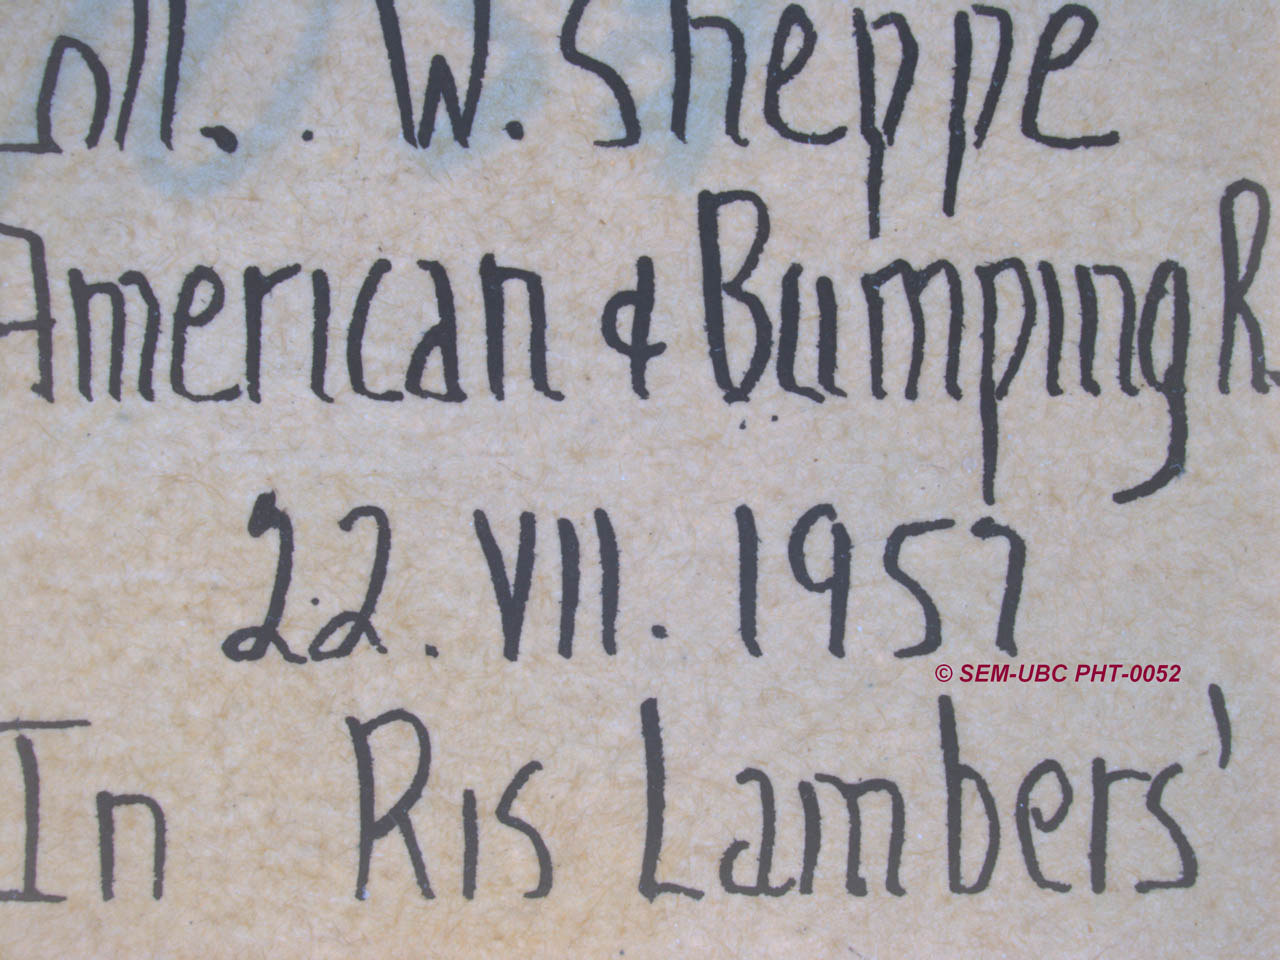 Coll. . W. Sheppe
American & Bumping R.
22. VII. 1957
© SEM-UBC PHT-0052
In Ris Lambers'